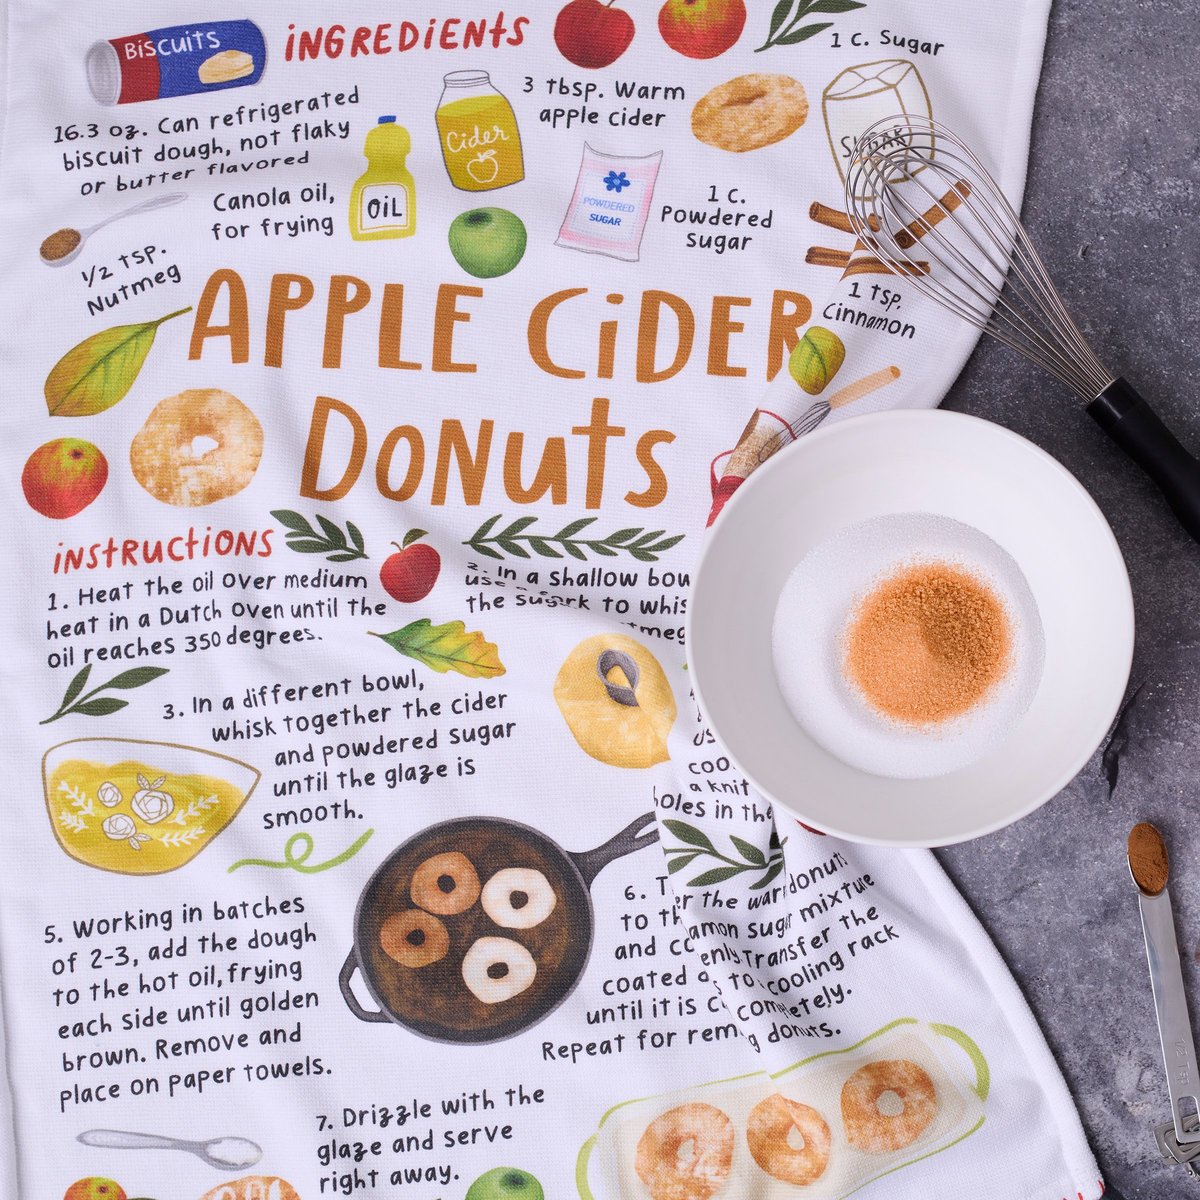 BISCUITS
INGREDIENTS
1 C. Sugar
16.3 oz. Can refrigerated
biscuit dough, not flaky
or butter flavored
Cider
3 tbsp. Warm
apple cider
SUGAR
Canola oil,
for frying
OIL
POWDERED
SUGAR
1 C.
Powdered
sugar
1/2 TSP.
Nutmeg
1 TSP.
Cinnamon
APPLE CIDER
DONUTS
INSTRUCTIONS
1. Heat the oil over medium
heat in a Dutch oven until the
oil reaches 350 degrees.
2. In a shallow bow
use
the to whis
tmeg
3. In a different bowl,
whisk together the cider
and powdered sugar
until the glaze is
smooth.
us
coo
a knif
holes in the
5. Working in batches
of 2-3, add the dough
to the hot oil, frying
each side until golden
brown. Remove and
place on paper towels.
6. T er the warm donuts
to th amon sugar mixture
and co enly. Transfer the
coated to cooling rack
until it is c completely.
Repeat for rem g donuts.
7. Drizzle with the
glaze and serve
right away.